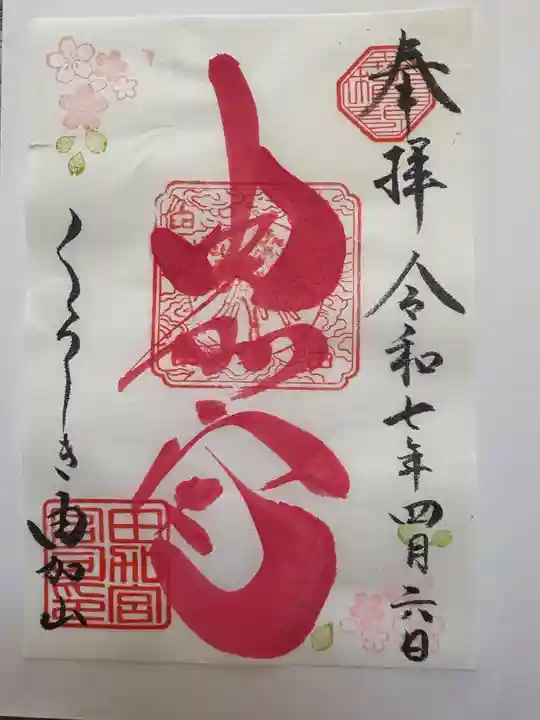 奉拝
令和七年四月六日
由加宮
くらしき由加山
由加宮司印